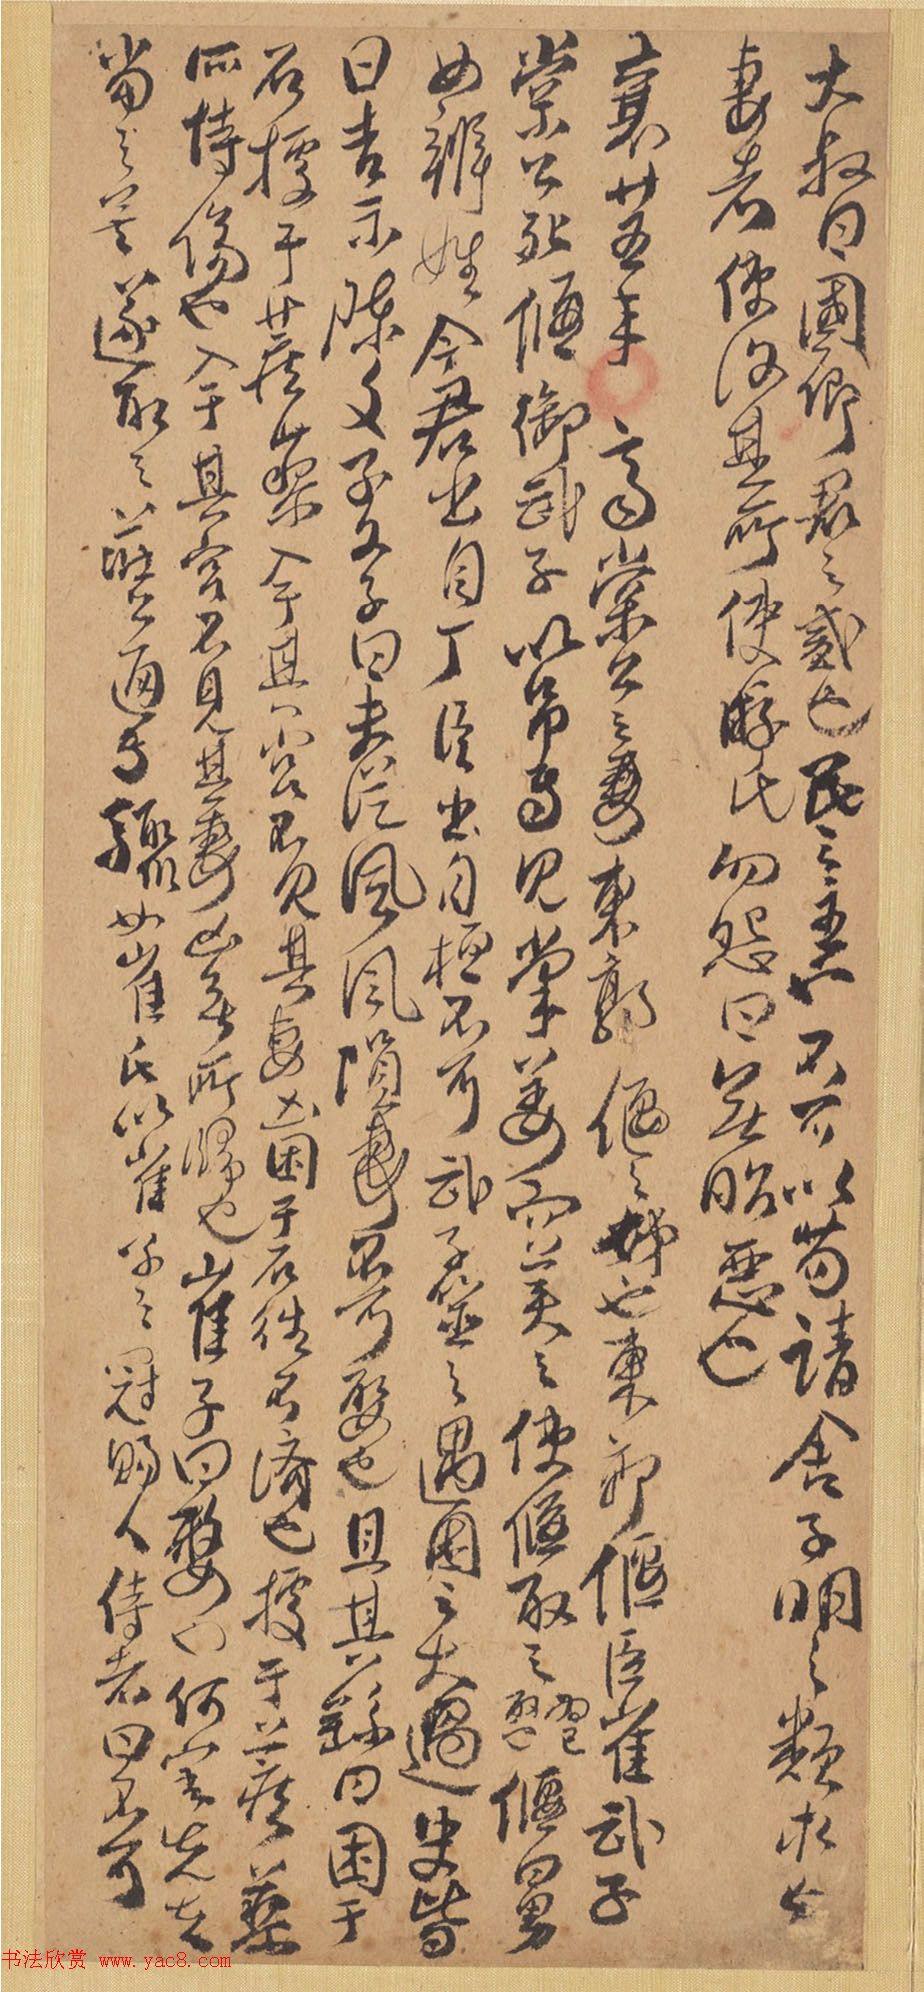 大叔曰國卿君之貳也民之主也不可以苟請舍子明之類求亡
妻者使復其所使游氏勿怨曰無昭惡也
襄廿五年 齊棠公之妻東郭偃之姊也東郭偃臣崔武子
棠公死偃御武子以吊焉見棠姜而美之使偃取之偃曰男
女辨姓今君出自丁臣出自桓不可武子筮之遇困之大過史皆
曰吉示陳文子文子曰夫從風風隕妻不可娶也且其繇曰困于
石據于蒺藜入于其宮不見其妻凶困于石往不濟也據于蒺藜
所恃傷也入于其宮不見其妻凶無所歸也崔子曰嫠也何害先夫
當之矣遂取之莊公通焉驟如崔氏以崔子之冠賜人侍者曰不可
书法欣赏 www.yac8.com